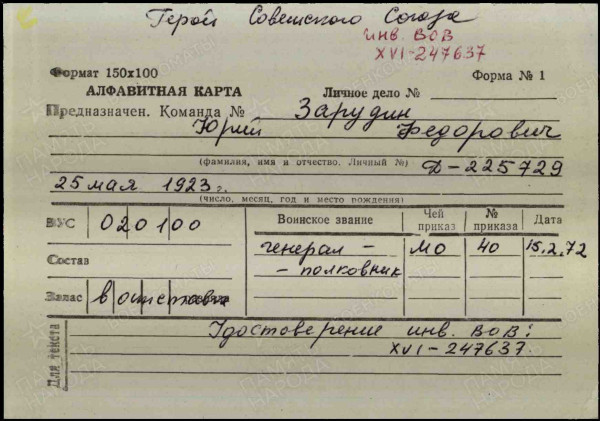 Герой Советского Союза
инв. ВОВ
XVI-247637
Формат 150х100
Форма № 1
АЛФАВИТНАЯ КАРТА
Личное дело №
Предназначен. Команда №
Зарудин
Юрий Федорович
(фамилия, имя и отчество. Личный №) Д-225729
25 мая 1923 г.
(число, месяц, год и место рождения)
ВУС 020100
Воинское звание
Чей приказ
№ приказа
Дата
генерал - МО 40 15.2.72
- полковник
Состав
Запас в отставке
Для текста
Удостоверение инв. ВОВ:
XVI-247637.
ПАМЯТЬ НАРОДА